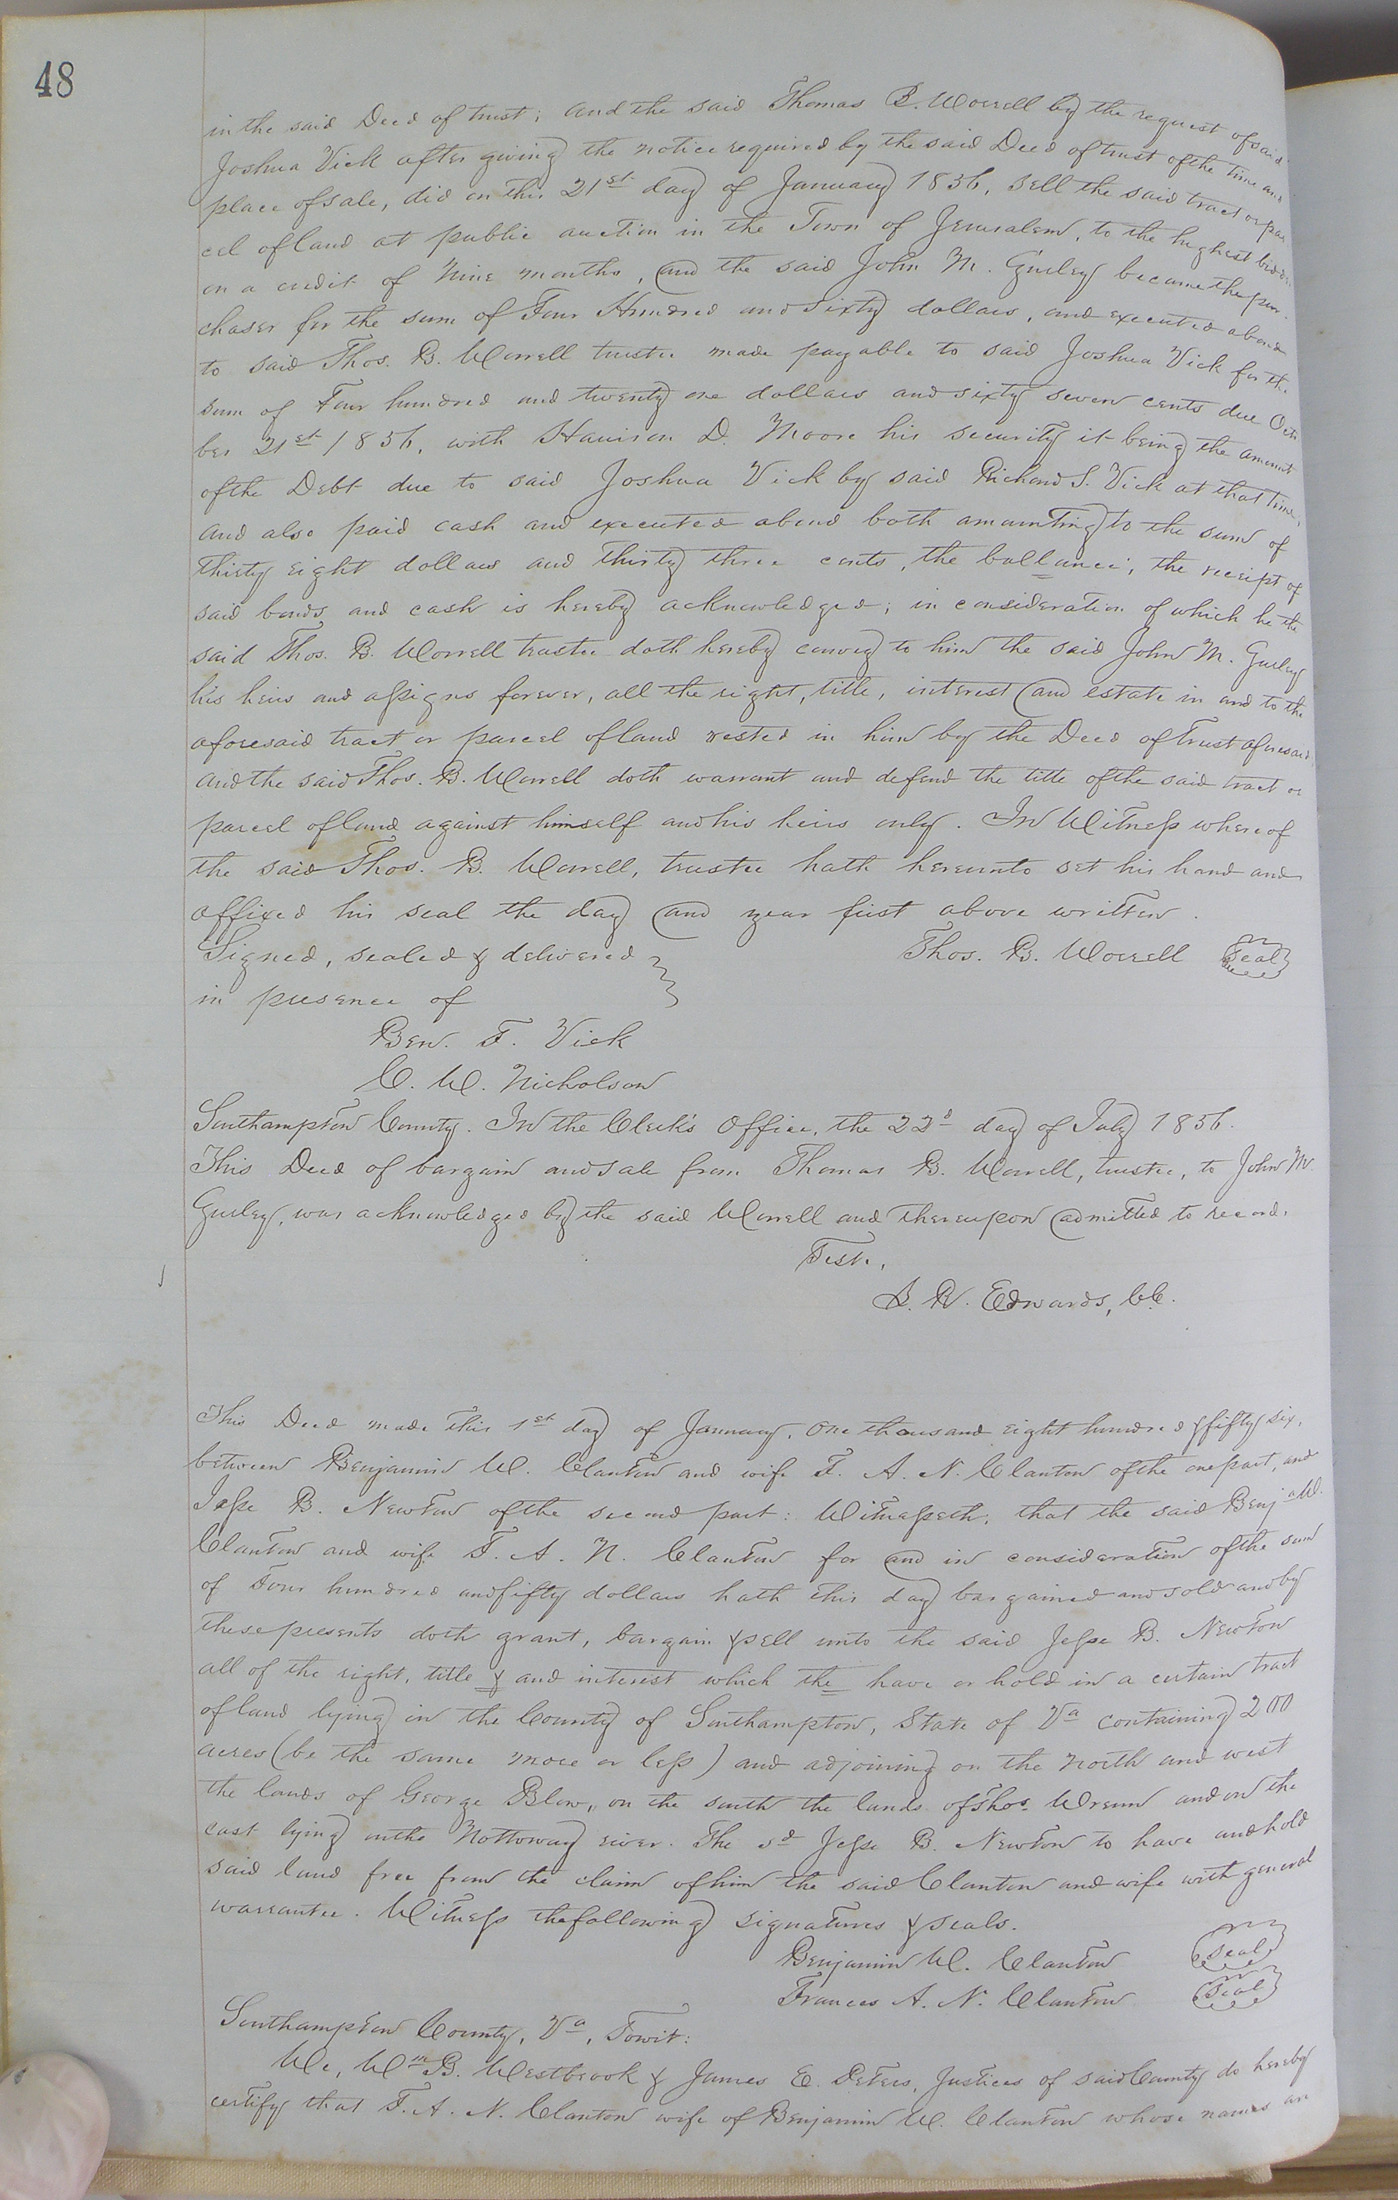 48
in the said Deed of trust; and the said Thomas B. Worrell by the request of said
Joshua Vick after giving the notice required by the said Deed of trust of the time and
place of sale, did on the 21st day of January 1856, sell the said tract or par
cel of land at public auction in the Town of Jerusalem, to the highest bidder
on a credit of Nine months, and the said John M. Gurley became the pur-
chaser for the sum of Four Hundred and Sixty dollars, and executed a bond
to said Thos. B. Worrell trustee made payable to said Joshua Vick for the
sum of Four hundred and twenty one dollars and sixty seven cents due Octo
ber 21st 1856, with Harrison D. Moore his security it being the amount
of the Debt due to said Joshua Vick by said Richard S. Vick at that time,
and also paid cash and executed a bond both amounting to the sum of
thirty eight dollars and thirty three cents, the ballance, the receipt of
said bonds and cash is hereby acknowledged; in consideration of which he the
said Thos. B. Worrell trustee doth hereby convey to him the said John M. Gurley
his heirs and assigns forever, all the right, title, interest and estate in and to the
aforesaid tract or parcel of land vested in him by the Deed of Trust aforesaid
and the said Thos. B. Worrell doth warrant and defend the title of the said tract or
parcel of land against himself and his heirs only. In Witness whereof
the said Thos. B. Worrell, trustee hath hereunto set his hand and
affixed his seal the day and year first above written.
Signed, sealed & delivered Thos. B. Worrell Seal
in presence of
Ben. F. Vick
C. W. Nicholson
Southampton County. In the Clerk's Office, the 22d day of July 1856.
This Deed of bargain and sale from Thomas B. Worrell, trustee, to John M.
Gurley, was acknowledged by the said Worrell and thereupon admitted to record.
Teste,
L. R. Edwards, C.C.
This Deed made this 1st day of January, one thousand eight hundred & fifty six,
between Benjamin W. Clanton and wife F. A. N. Clanton of the one part, and
Jesse B. Newton of the second part: Witnesseth, that the said Benja W.
Clanton and wife F. A. N. Clanton for and in consideration of the sum
of Four hundred and fifty dollars hath this day bargained and sold and by
these presents doth grant, bargain & sell unto the said Jesse B. Newton
all of the right, title & and interest which the have or hold in a certain tract
of land lying in the County of Southampton, State of Va containing 200
acres (be the same more or less) and adjoining on the north and west
the lands of George Blow, on the south the lands of Thos. Wrenn and on the
east lying on the Nottoway river. The sd Jesse B. Newton to have and hold
said land free from the claim of him the said Clanton and wife with general
warrantee. Witness the following signatures & seals.
Benjamin W. Clanton Seal
Frances A. N. Clanton Seal
Southampton County, Va, Towit:
We, Wm B. Westbrook & James E. Peters, Justices of said County do hereby
certify that F. A. N. Clanton wife of Benjamin W. Clanton whose names are